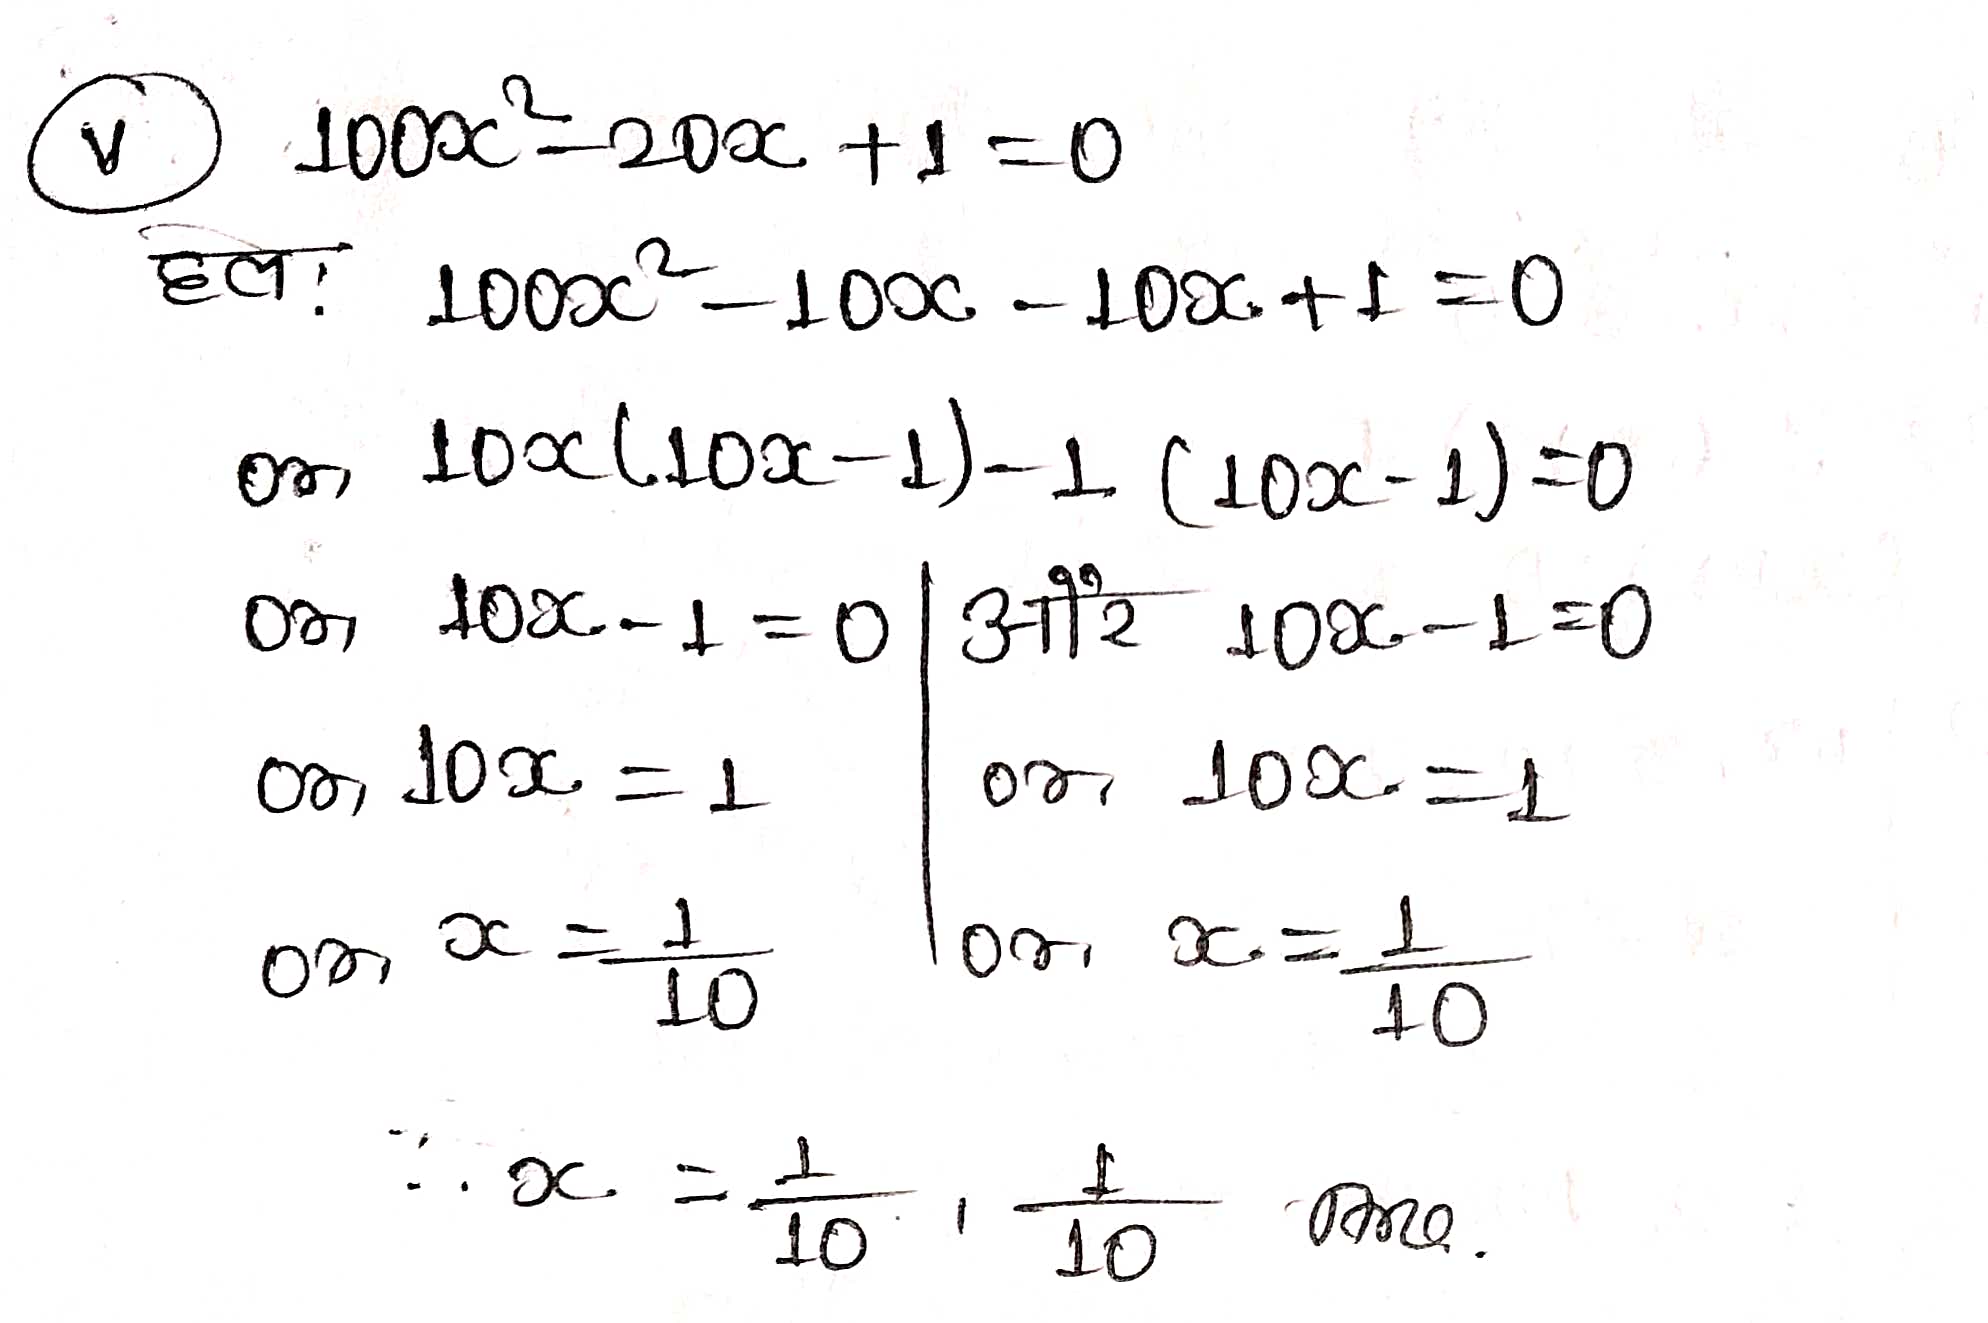 (v) 100x² - 20x + 1 = 0
हल: 100x² - 10x - 10x + 1 = 0
or, 10x(10x - 1) - 1 (10x - 1) = 0
or, 10x - 1 = 0 | और 10x - 1 = 0
or, 10x = 1 | or, 10x = 1
or, x = 1/10 | or, x = 1/10
∴ x = 1/10 , 1/10 Ans.